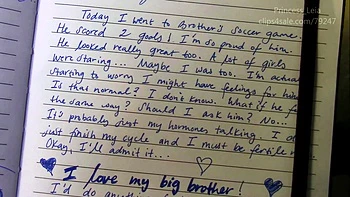 Princess Leia
clips4sale.com/79247
Today I went to Brother's soccer game.
He scored 2 goals! I'm so proud of him.
He looked really great too. A lot of girls
were staring... Maybe I was too. I'm actua
starting to worry I might have feelings for him
Is that normal? I don't know. What if he f
the same way? Should I ask him? No...
It's probably just my hormones talking. I d
just finish my cycle and I must be fertile n
Okay, I'll admit it...
I love my big brother!
I'd do